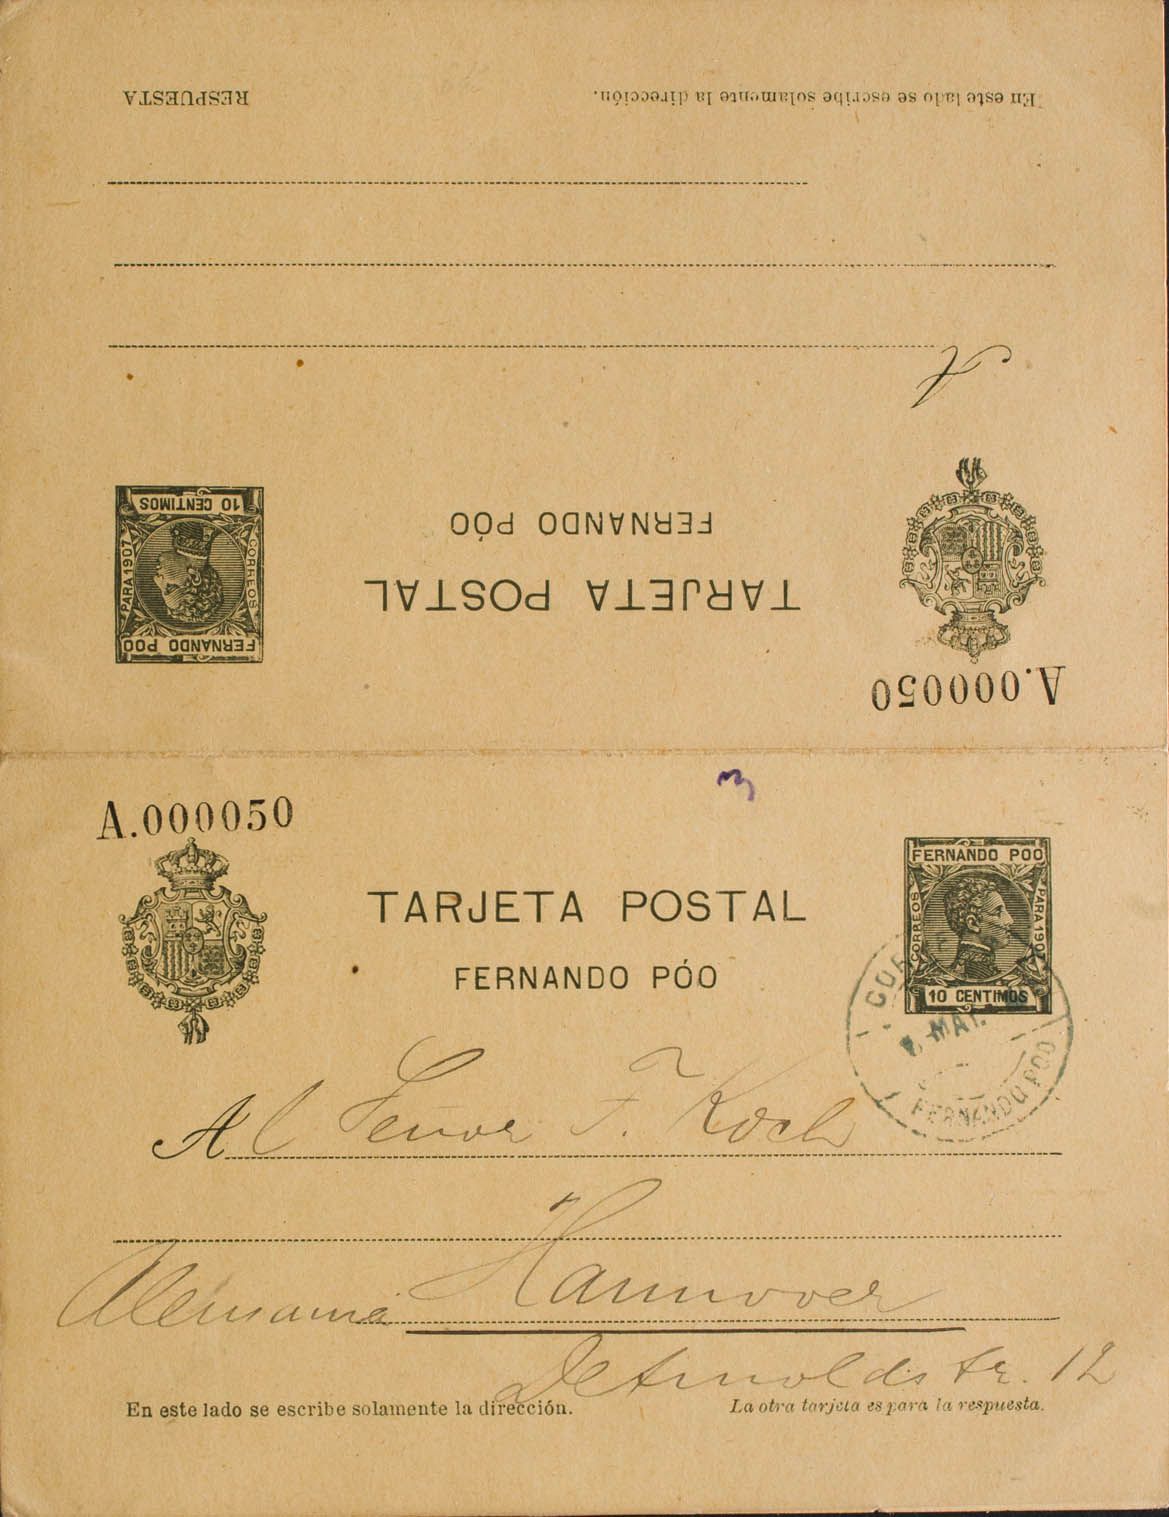 RESPUESTA
En este lado se escribe solamente la dirección.
A
FERNANDO PÓO
TARJETA POSTAL
10 CENTIMOS
PARA 1907
CORREOS
FERNANDO POO
A.000050
3
A.000050
TARJETA POSTAL
FERNANDO PÓO
FERNANDO POO
CORREOS
PARA 1907
10 CENTIMOS
MAY.
FERNANDO POO
Al Señor F. Koch
Hannover
Alemania
Detmoldstr. 12
En este lado se escribe solamente la dirección.
La otra tarjeta es para la respuesta.